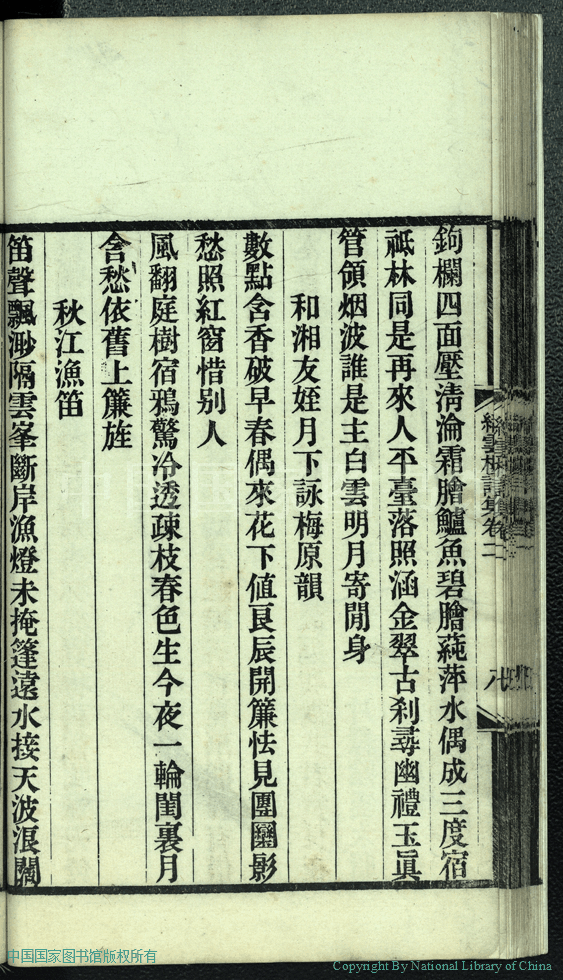 鉤欄四面壓淸淪霜膾鱸魚碧膾蒓萍水偶成三度宿
祗林同是再來人平臺落照涵金翠古刹尋幽禮玉眞
管領烟波誰是主白雲明月寄閒身
和湘友姪月下詠梅原韻
數點含香破早春偶來花下値良辰開簾怯見團圞影
愁照紅窗惜别人
風翻庭樹宿鴉驚冷透疎枝春色生今夜一輪閨裏月
含愁依舊上簾旌
秋江漁笛
笛聲飄渺隔雲峯斷岸漁燈未掩篷遠水接天波浪闊
雲集卷二
八
中国国家图书馆版权所有
Copyright By National Library of China